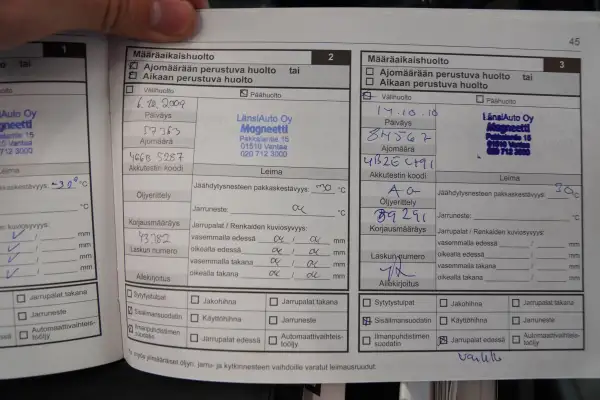 45
1
to tai
to
takana
Jarruneste
Automaattivaihteis-
toöljy
Määräaikaishuolto 2
Ajomäärään perustuva huolto tai
Aikaan perustuva huolto
Välihuolto Päähuolto
6.10.2009
Päiväys
57363
Ajomäärä
Akkutestin koodi
Öljyerittely
Korjausmääräys
Laskun numero
Allekirjoitus
LänsiAuto Oy
Magneetti
Pakkalantie 15
01510 Vantaa
020 712 3000
Leima
Jäähdytysnesteen pakkaskestävyys: -30 °C
Jarruneste: ok °C
Jarrupalat / Renkaiden kuviosyvyys:
vasemmalla edessä ok / ok mm
oikealla edessä ok / ok mm
vasemmalla takana ok / ok mm
oikealla takana ok / ok mm
Sytytystulpat Jakohihna Jarrupalat takana
Sisäilmansuodatin Käyttöhihna Jarruneste
Ilmanpuhdistimen
suodatin
Jarrupalat edessä
Automaattivaihteis-
toöljy
Määräaikaishuolto 3
Ajomäärään perustuva huolto tai
Aikaan perustuva huolto
Välihuolto Päähuolto
14.10.10
Päiväys
84567
Ajomäärä
Akkutestin koodi
Öljyerittely
Korjausmääräys
Laskun numero
Allekirjoitus
LänsiAuto Oy
Magneetti
Pakkalantie 15
01510 Vantaa
020 712 3000
Leima
Jäähdytysnesteen pakkaskestävyys: 30 °C
Jarruneste: °C
Jarrupalat / Renkaiden kuviosyvyys:
vasemmalla edessä / mm
oikealla edessä / mm
vasemmalla takana / mm
oikealla takana / mm
Sytytystulpat Jakohihna Jarrupalat takana
Sisäilmansuodatin Käyttöhihna Jarruneste
Ilmanpuhdistimen
suodatin
Jarrupalat edessä
Automaattivaihteis-
toöljy
öljyn, jarru- ja kytkinnesteen vaihdoille varatut leimausruudut.